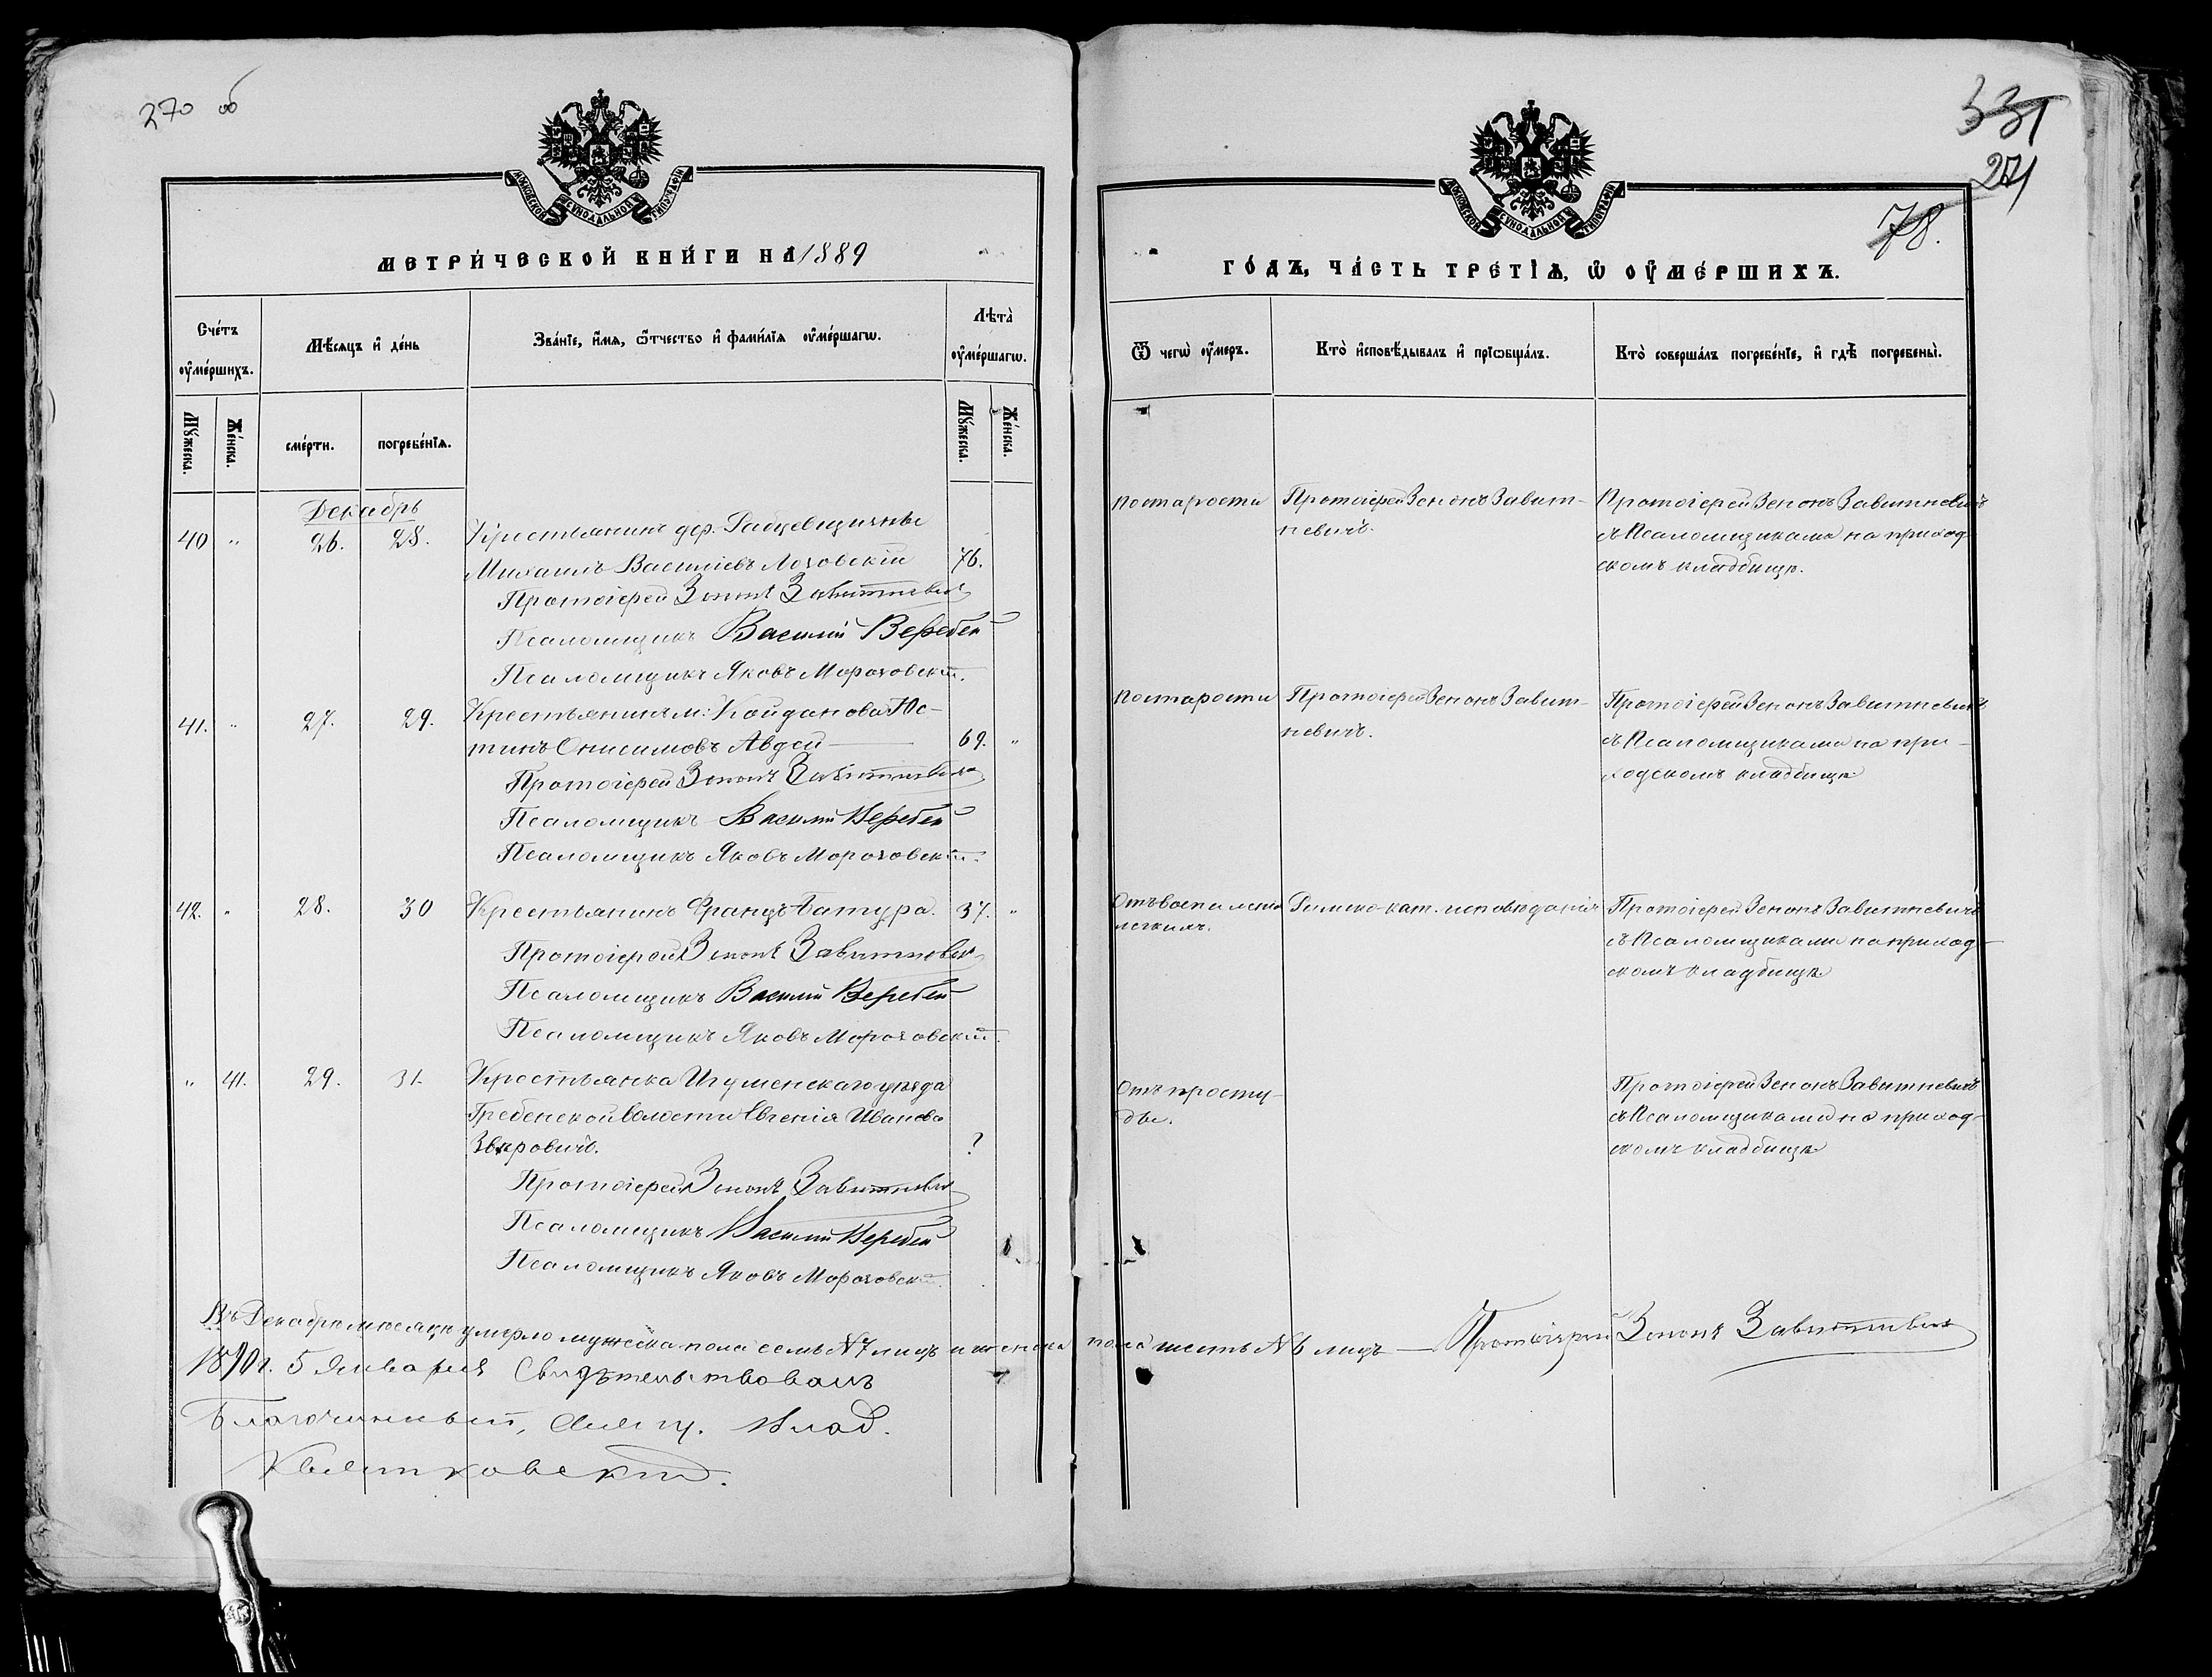 270 об
331
271
78.
МОСКОВСКОЙ СѴНОДАЛЬНОЙ ТИПОГРАФІИ
МОСКОВСКОЙ СѴНОДАЛЬНОЙ ТИПОГРАФІИ
МЕТРИ́ЧЕСКОЙ КНИ́ГИ НА 1889
ГО́ДЪ, ЧА́СТЬ ТРЕ́ТІѦ, Ѡ҆ ОУ҆МЕ́РШИХЪ.
Сче́тъ оу҆ме́ршихъ.
Мѣ́сяцъ и҆ де́нь
Зва́нїе, и҆́мѧ, ѻ҆́тчество и҆ фами́лїѧ оу҆ме́ршагѡ.
Лѣта̀ оу҆ме́ршагѡ.
Ѿ чегѡ̀ оу҆́меръ.
Кто̀ и҆сповѣ́дывалъ и҆ прїѡбща́лъ.
Кто̀ соверша́лъ погребе́нїе, и҆ гдѣ̀ погребены̀.
Мꙋ́жеска.
Же́нска.
сме́рти.
погребе́нїѧ.
Мꙋ́жеска.
Же́нска.
Декабрь
40 „ 26. 28. Крестьянинъ дер.
Михаилъ Васильевъ Лоховскій 76.
Протоіерей Зенонъ Завитневичъ
Псаломщикъ Василій Веребей
Псаломщикъ Яковъ Мороховскій.
По старости
Протоіерей Зенонъ Завит-
невичъ.
Протоіерей Зенонъ Завитневичъ
съ Псаломщиками на приход
скомъ кладбищѣ.
41. „ 27. 29. Крестьянинъ м: Койданова Юс-
тинъ Онисимовъ Авдей 69. „
Протоіерей Зенонъ Завитневичъ
Псаломщикъ Василій Веребей
Псаломщикъ Яковъ Мороховскій.
По старости
Протоіерей Зенонъ Завит-
невичъ.
Протоіерей Зенонъ Завитневичъ
съ Псаломщиками на при-
ходскомъ кладбищѣ
42. „ 28. 30 Крестьянинъ Францъ Батура. 37. „
Протоіерей Зенонъ Завитневичъ
Псаломщикъ Василій Веребей
Псаломщикъ Яковъ Мороховскій.
Отъ воспаленія
легкихъ.
Римско-кат. исповѣданія
Протоіерей Зенонъ Завитневичъ
съ Псаломщиками на приход-
скомъ кладбищѣ
„ 41. 29. 31. Крестьянка Игуменскаго уѣзда
Гребенской волости Евгенія Иванова
Звѣровичъ. ?
Протоіерей Зенонъ Завитневичъ
Псаломщикъ Василій Веребей
Псаломщикъ Яковъ Мороховскій.
Отъ просту-
ды.
Протоіерей Зенонъ Завитневичъ
съ Псаломщиками на приход-
скомъ кладбищѣ
Въ Декабрѣ мѣсяцѣ умерло мужеска пола семь № 7 лицъ и женска пола шесть № 6 лицъ — Протоіерей Зенонъ Завитневичъ
1890 г. 5 Января Свидѣтельствовалъ
Благочинный, Свящ. Влад.